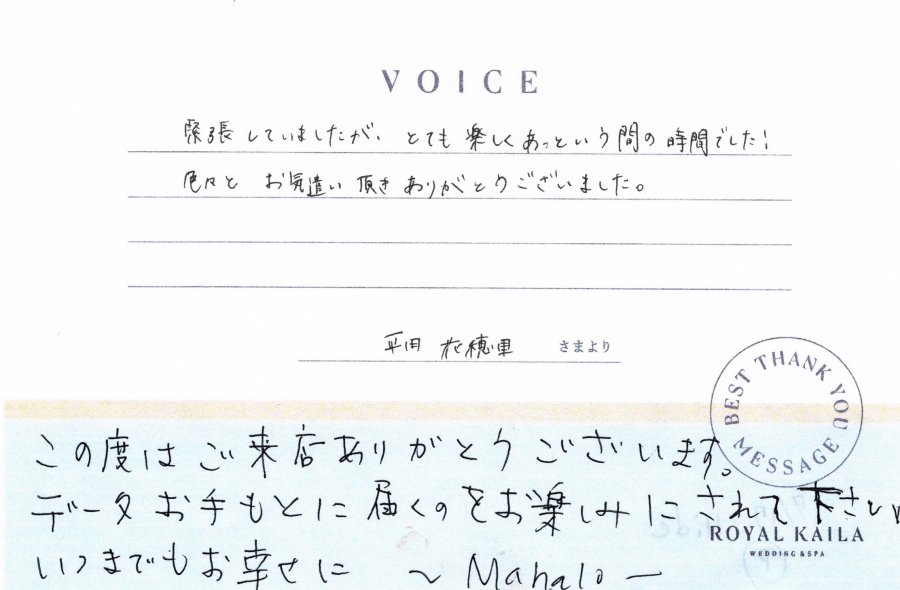 VOICE
緊張していましたが、とても楽しくあっという間の時間でした!
色々と お気遣い頂きありがとうございました。
平田 衣穂里 さまより
BEST THANK YOU MESSAGE
この度はご来店ありがとうございます。
データお手もとに届くのをお楽しみにされて下さい
ROYAL KAILA
WEDDING & SPA
いつまでもお幸せに 〜Mahalo〜